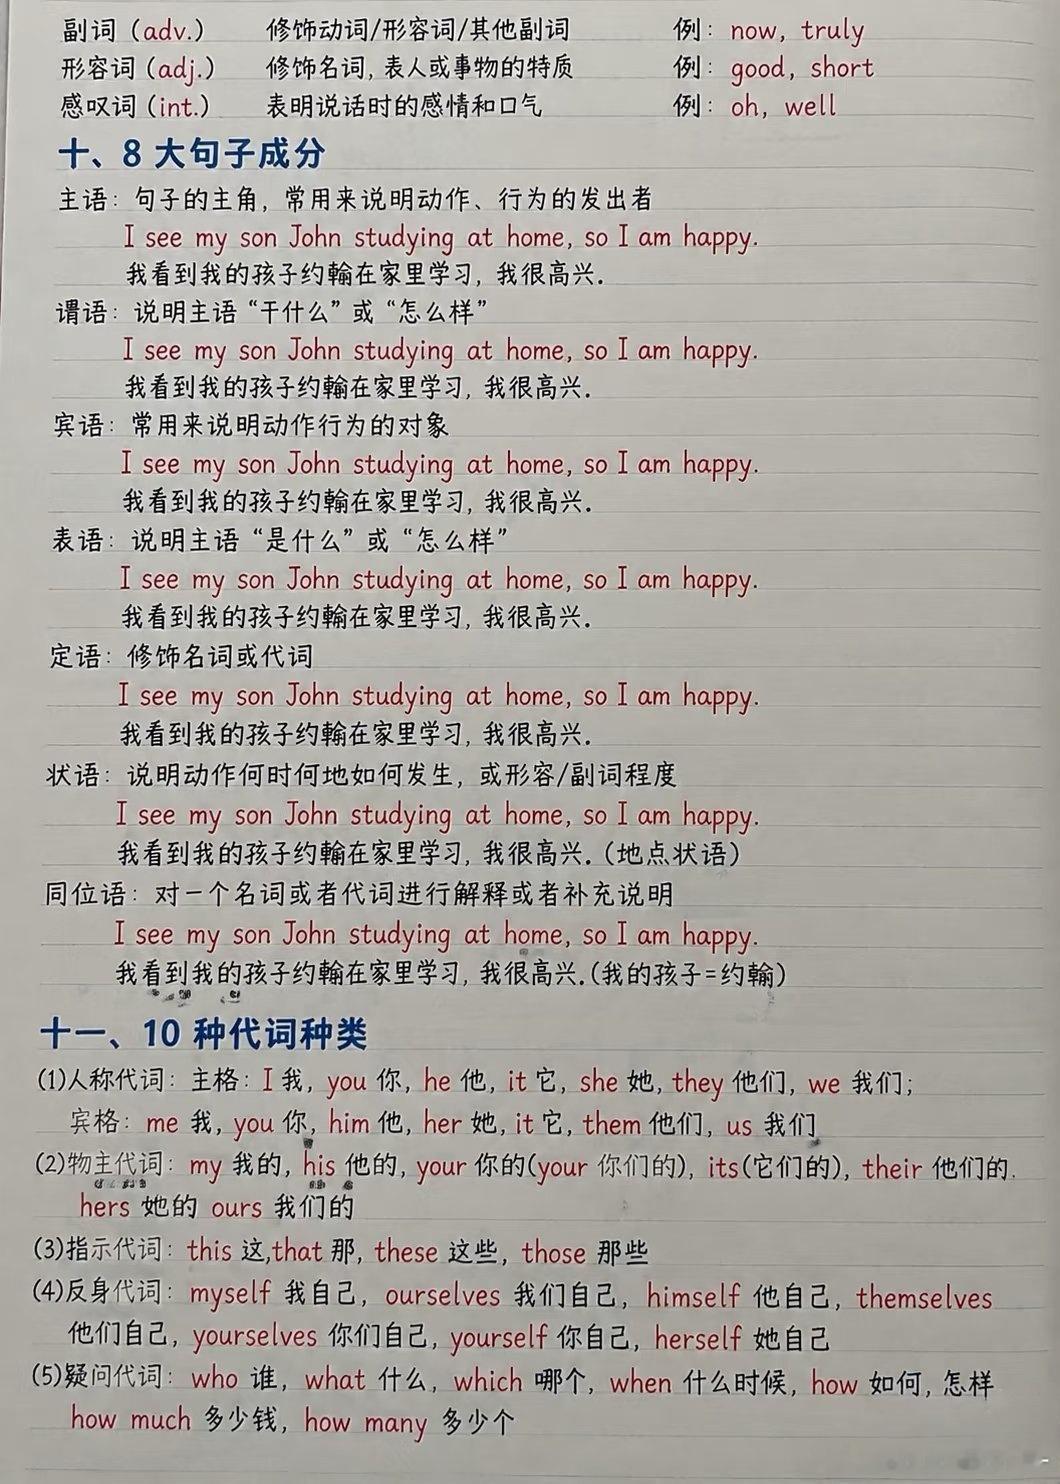 副词 (adv.) 修饰动词/形容词/其他副词 例: now, truly
形容词 (adj.) 修饰名词, 表人或事物的特质 例: good, short
感叹词 (int.) 表明说话时的感情和口气 例: oh, well
十、8 大句子成分
主语: 句子的主角, 常用来说明动作、行为的发出者
I see my son John studying at home, so I am happy.
我看到我的孩子约翰在家里学习, 我很高兴.
谓语: 说明主语“干什么”或“怎么样”
I see my son John studying at home, so I am happy.
我看到我的孩子约翰在家里学习, 我很高兴.
宾语: 常用来说明动作行为的对象
I see my son John studying at home, so I am happy.
我看到我的孩子约翰在家里学习, 我很高兴.
表语: 说明主语“是什么”或“怎么样”
I see my son John studying at home, so I am happy.
我看到我的孩子约翰在家里学习, 我很高兴.
定语: 修饰名词或代词
I see my son John studying at home, so I am happy.
我看到我的孩子约翰在家里学习, 我很高兴.
状语: 说明动作何时何地如何发生, 或形容/副词程度
I see my son John studying at home, so I am happy.
我看到我的孩子约翰在家里学习, 我很高兴. (地点状语)
同位语: 对一个名词或者代词进行解释或者补充说明
I see my son John studying at home, so I am happy.
我看到我的孩子约翰在家里学习, 我很高兴.(我的孩子=约翰)
十一、10 种代词种类
(1)人称代词: 主格: I 我, you 你, he 他, it 它, she 她, they 他们, we 我们;
宾格: me 我, you 你, him 他, her 她, it 它, them 他们, us 我们
(2)物主代词: my 我的, his 他的, your 你的(your 你们的), its(它们的), their 他们的.
hers 她的 ours 我们的
(3)指示代词: this 这,that 那, these 这些, those 那些
(4)反身代词: myself 我自己, ourselves 我们自己, himself 他自己, themselves
他们自己, yourselves 你们自己, yourself 你自己, herself 她自己
(5)疑问代词: who 谁, what 什么, which 哪个, when 什么时候, how 如何, 怎样
how much 多少钱, how many 多少个